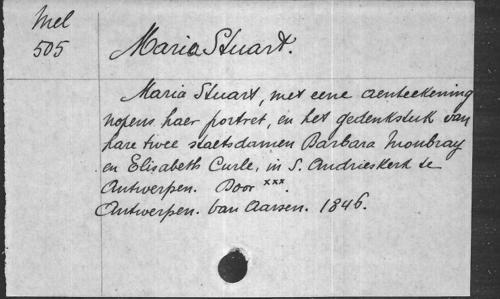 Mel
505
Maria Stuart.
Maria Stuart, met eene aenteekening
nopens haer portret, en het gedenkstuk van
hare twee staetsdamen Barbara Moubray
en Elisabeth Curle, in S. Andrieskerk te
Antwerpen. Door xxx.
Antwerpen. Van Aarsen. 1846.